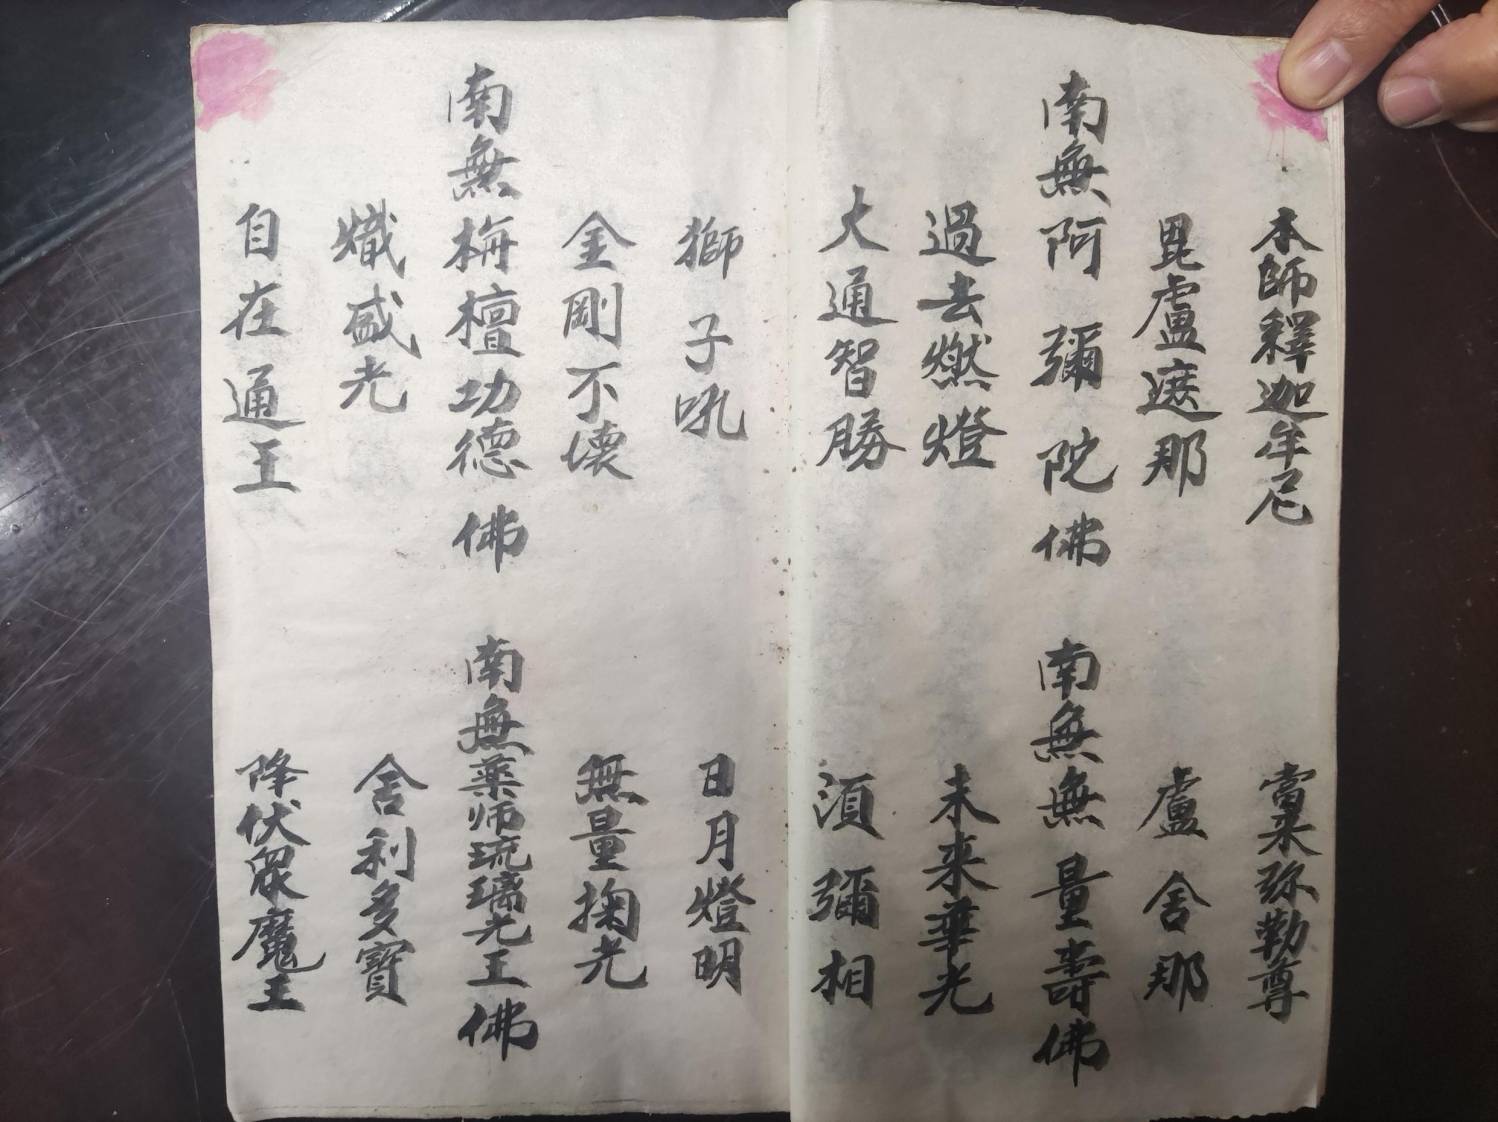 本師釋迦牟尼
當來弥勒尊
毘盧遮那
盧舍那
南無阿彌陀佛
南無無量壽佛
過去燃燈
未来華光
大通智勝
須彌相
獅子吼
日月燈明
金剛不壊
無量掬光
南無栴檀功德佛
南無薬师琉璃光王佛
熾盛光
舍利多寳
自在通王
降伏眾魔王